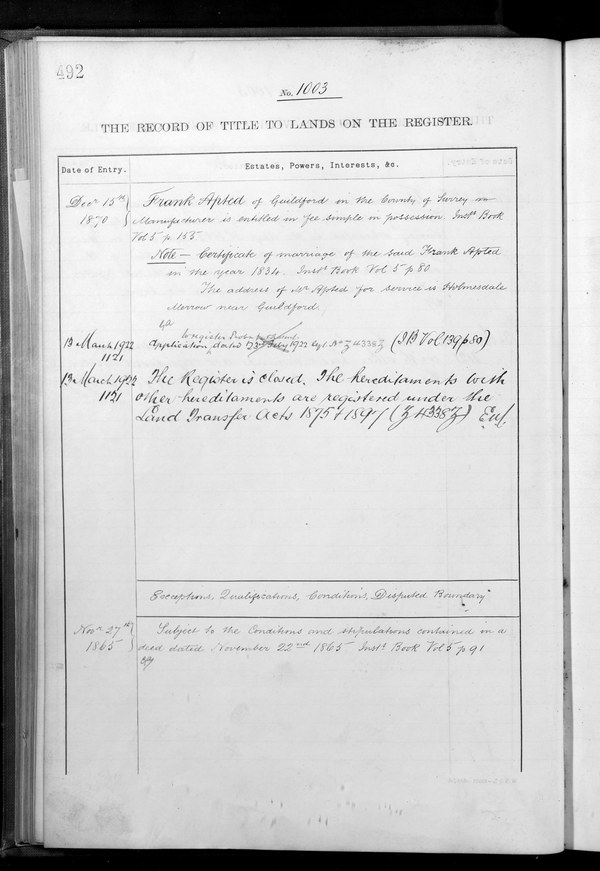 492
No. 1003
THE RECORD OF TITLE TO LANDS ON THE REGISTER.
Date of Entry.
Estates, Powers, Interests, &c.
Decr 15th 1870
Frank Apted of Guildford in the County of Surrey
Manufacturer is entitled in fee simple in possession. Instt Book
Vol 5 p 155
Note — Certificate of marriage of the said Frank Apted
in the year 1834. Instt Book Vol 5 p 80
The address of Mr Apted for service is Holmesdale
Merrow near Guildford.
13 March 1922
1121
Application dated 1922 No Z 4338Z (IB Vol 139 p 80)
13 March 1922
1121
The Register is closed. The hereditaments with
other hereditaments are registered under the
Land Transfer Acts 1875 & 1897 (Z 4338Z)
Exceptions, Qualifications, Conditions, Disputed Boundary
Novr 27th
1865
Subject to the Conditions and stipulations contained in a
deed dated November 22nd 1865 Instt Book Vol 5 p 91